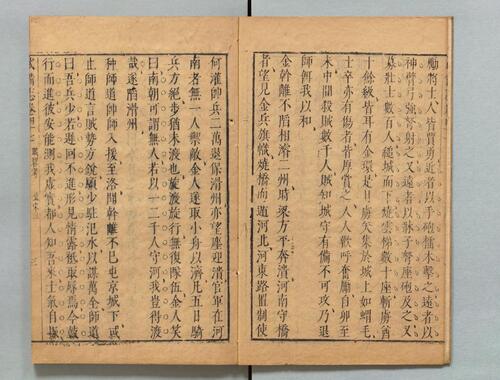 勵將士人皆賈勇近者以手砲檑木擊之遠者以
神臂弓強弩射之又遠者以牀子弩座砲及之又
募壯士數百人縋城而下燒雲梯數十座斬虜酋
十餘級皆耳有金環是日虜矢集於城上如蝟毛
士卒亦有傷者皆厚賞之人人歡呼奮勵自卯至
未申間殺賊數千人賊知城守有備不可攻乃退
師餌我以和
金幹離不陷相濬二州時梁方平奔濬河南守橋
者望見金兵旗幟燒橋而遁河北河東路置制使
何灌帥兵二萬退保滑州亦望塵迎潰官軍在河
南者無一人禦敵金人遂取小舟以濟凡五日騎
兵方絕步猶未渡也旋渡旋行無復隊伍金人笑
曰南朝可謂無人若以一二千人守河我豈得渡
哉遂陷滑州
种師道帥師入援至洛聞幹離不已屯京城下或
止師道言賊勢方銳願少駐汜水以謀萬全師道
曰吾兵少若遲回不進形見情露祗取辱焉今鼓
行而進彼安能測我虛實都人知吾來士氣自振
武備志卷四十